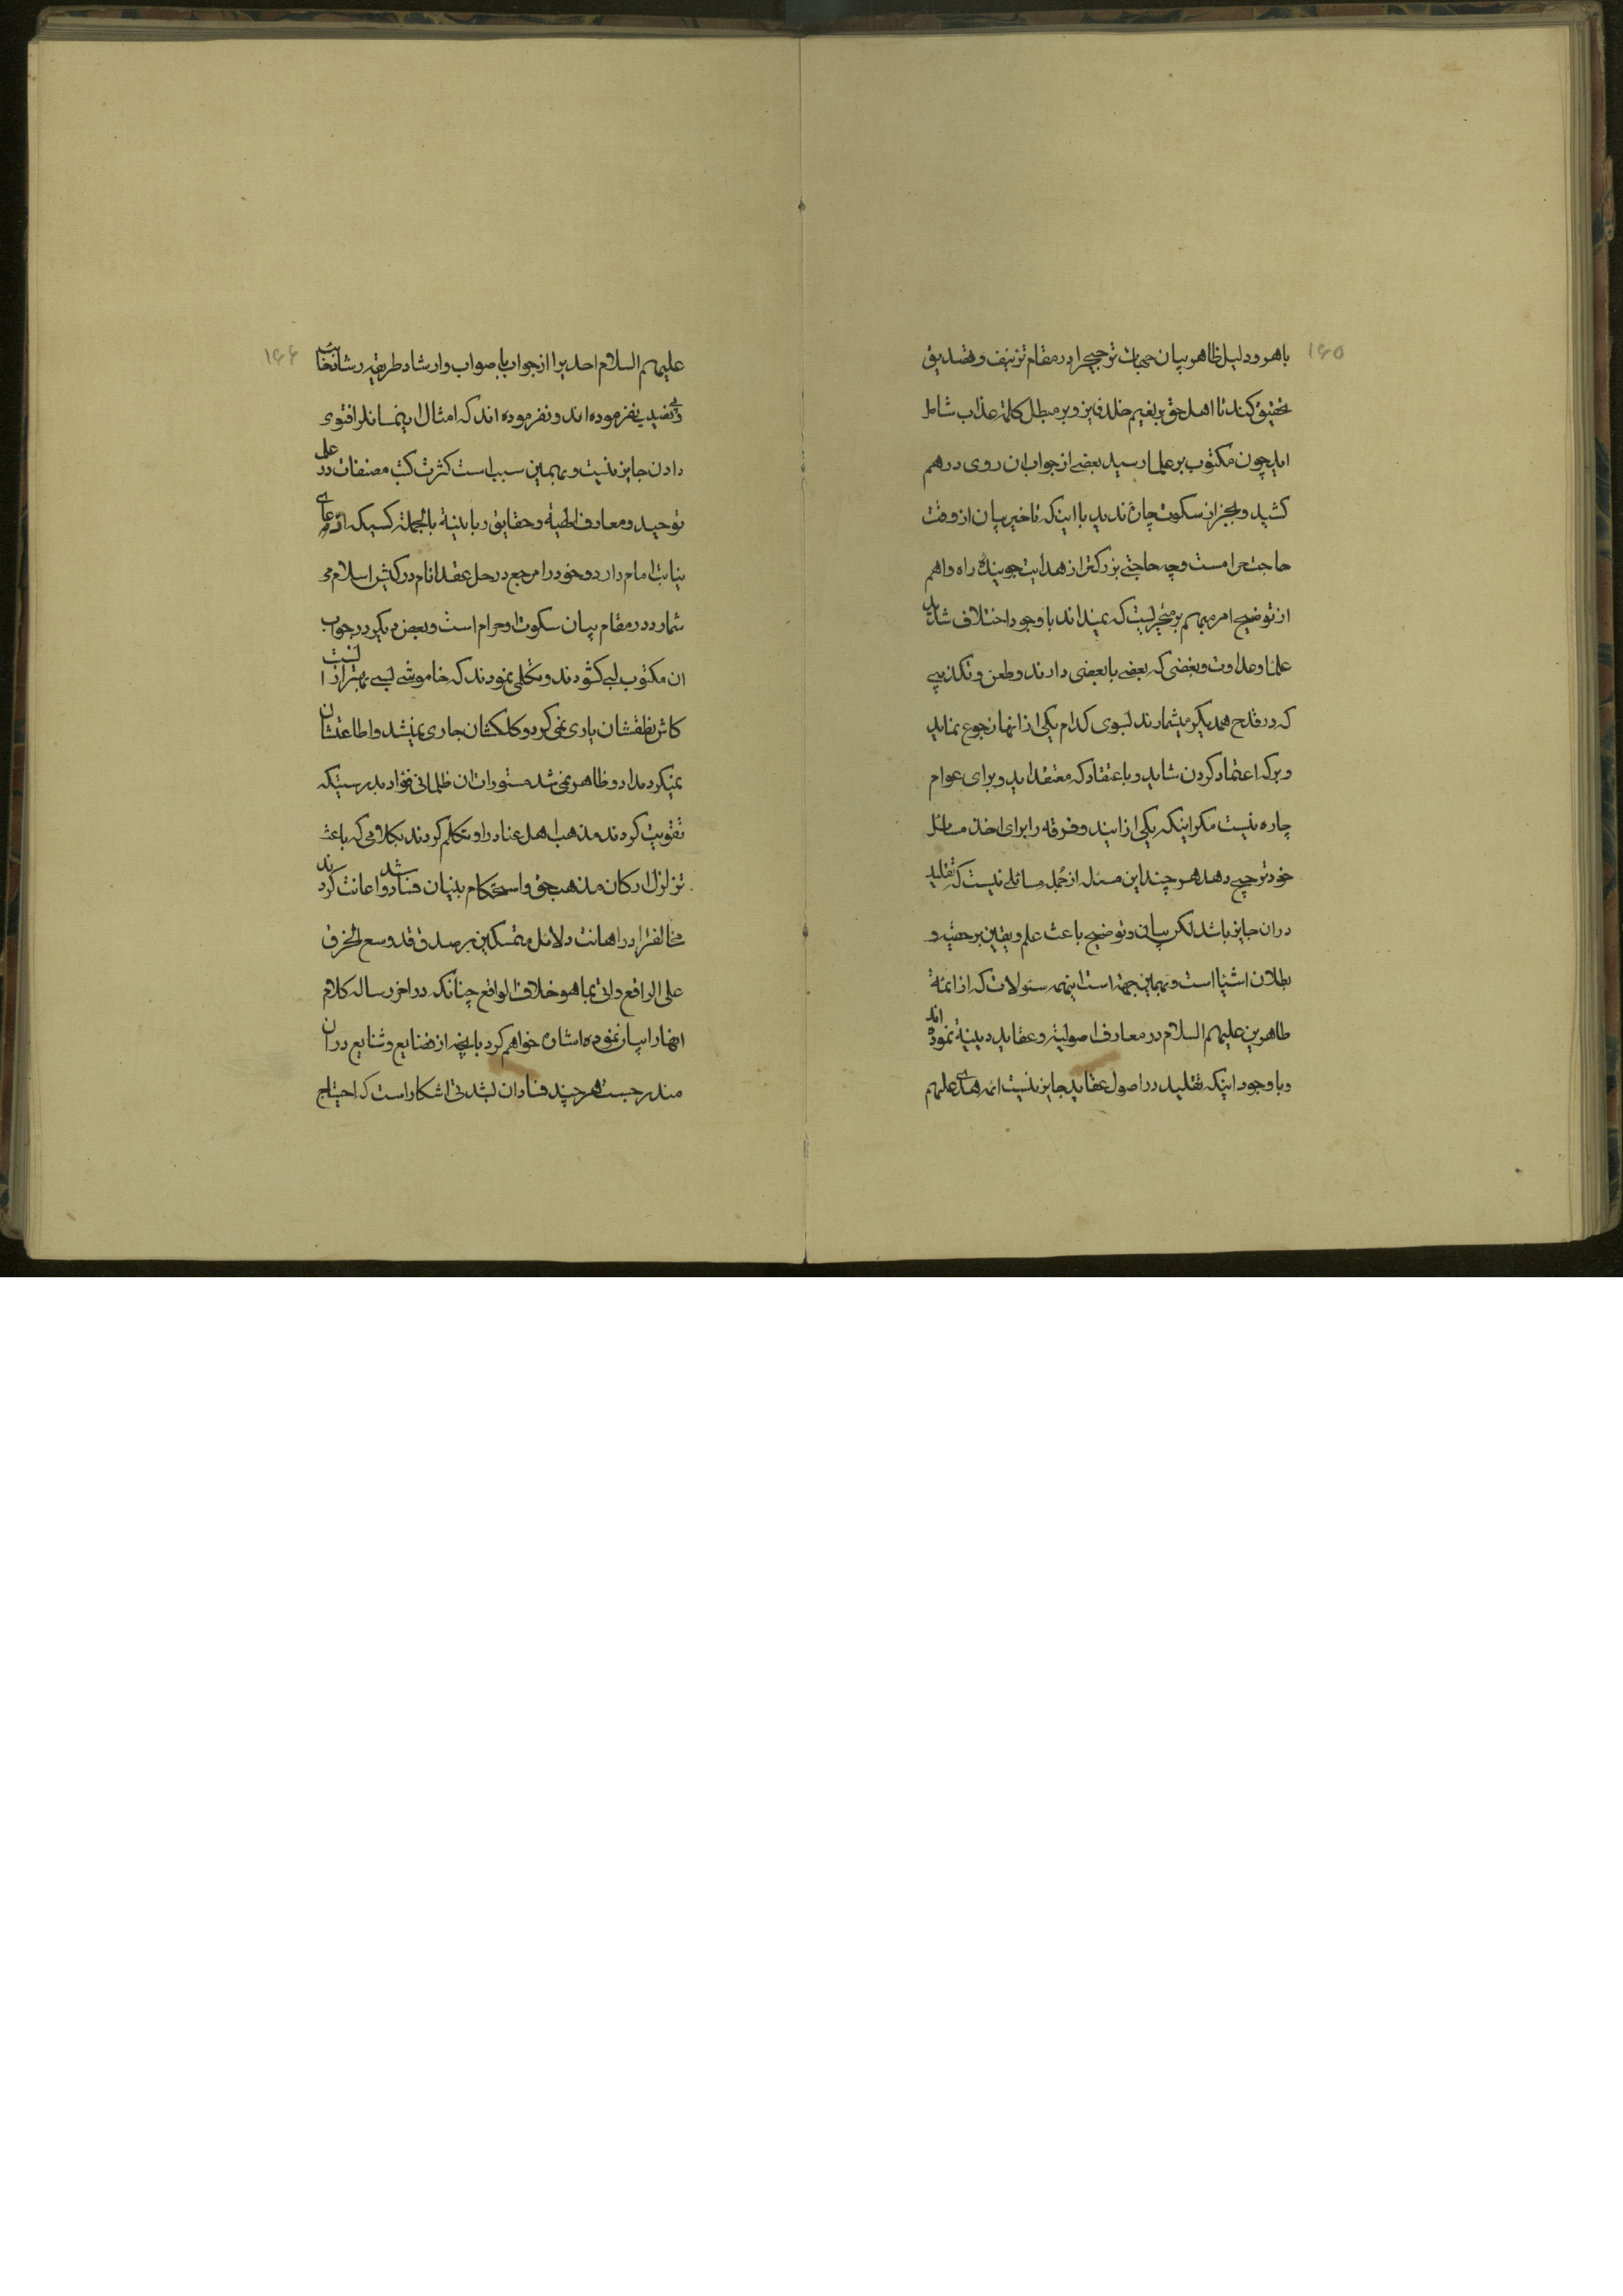 ۱۶۵
باهر و دلیل ظاهر بیان جهات ترجیح را در مقام تزییف و تصدیق
تحقیق کنند تا اهل حق بنعیم خلد فایز و بر مبطل کلمة عذاب شامل
اید چون مکتوب بر علما رسید بعضی از جواب ان روی در هم
کشید و بجز از سکوت چاره ندید با اینکه تاخیر بیان از وقت
حاجت حرامست و چه حاجتی بزرکتر از هدایت جوینده راه و اهم
از توضیح امر مبهم بر متحیریست که نمیداند با وجود اختلاف شدید
علما و عداوت و بغضی که بعضی با بعضی دارند و طعن و تکذیبی
که در قدح همدیکر میشمارند بسوی کدام یکی از انها رجوع نماید
و بر که اعتماد کردن شاید و با عتقاد که معتقد اید و برای عوام
چاره نیست مکر اینکه یکی از ایندو فرقه را برای اخذ مسائل
خود ترجیح دهد هر چند این مسئله از جمله مسائلی نیست که تقلید
در ان جایز باشد لکن بیانی و توضیح باعث علم و یقین بر حقیه و
بطلان اشیا است و بهمین جهة است اینهمه سئولات که از ائمة
طاهرین علیهم السلام در معارف اصولیة و عقاید دینیة نموده اند
و با وجود اینکه تقلید در اصول عقاید جایز نیست ائمه هدی علیهم
۱۶۶
علیهم السلام احدیرا از جواب با صواب و ارشاد طریقه رشاد خائب
و نا امید نفرموده اند و نفرموده اند که امثال این مسائلرا فتوی
دادن جایز نیست و بهمین سبب است کثرت کتب مصنفات در علم
توحید و معارف الهیة و حقایق ربانیة بالجملة کسیکه ادعای
نیابت امام دارد و خود را مرجع در حل عقد انام در کیش اسلام می
شمارد در مقام بیان سکوت او حرام است و بعض دیکر در جواب
ان مکتوب لبی کشودند و تکلمی نمودند که خاموشی بسی بهتر از انست
کاش نطقشان یاری نمی کرد و کلکشان جاری نمیشد و اطاعتشان
نمیکرد مداد و ظاهر نمی شد مستورات ان ظلمانی فؤاد بدرستیکه
تقویت کردند مذهب اهل عناد را و تکلم کردند بکلامی که باعث
تزلزل ارکان مذهب حق و استحکام بنیان فساد شد و اعانت کردند
مخالفتر ادر اهانت دلائل متمسکین بر صدق قد وسع الخرق
علی الراقع و اتی بما هو خلاف الواقع چنانکه در اخر رساله کلام
انها را بیان نموده اشاره خواهم کرد بانچه از فضایع و شنایع در ان
مندرجست هر چند فساد ان بشدتی اشکار است که احتیاج